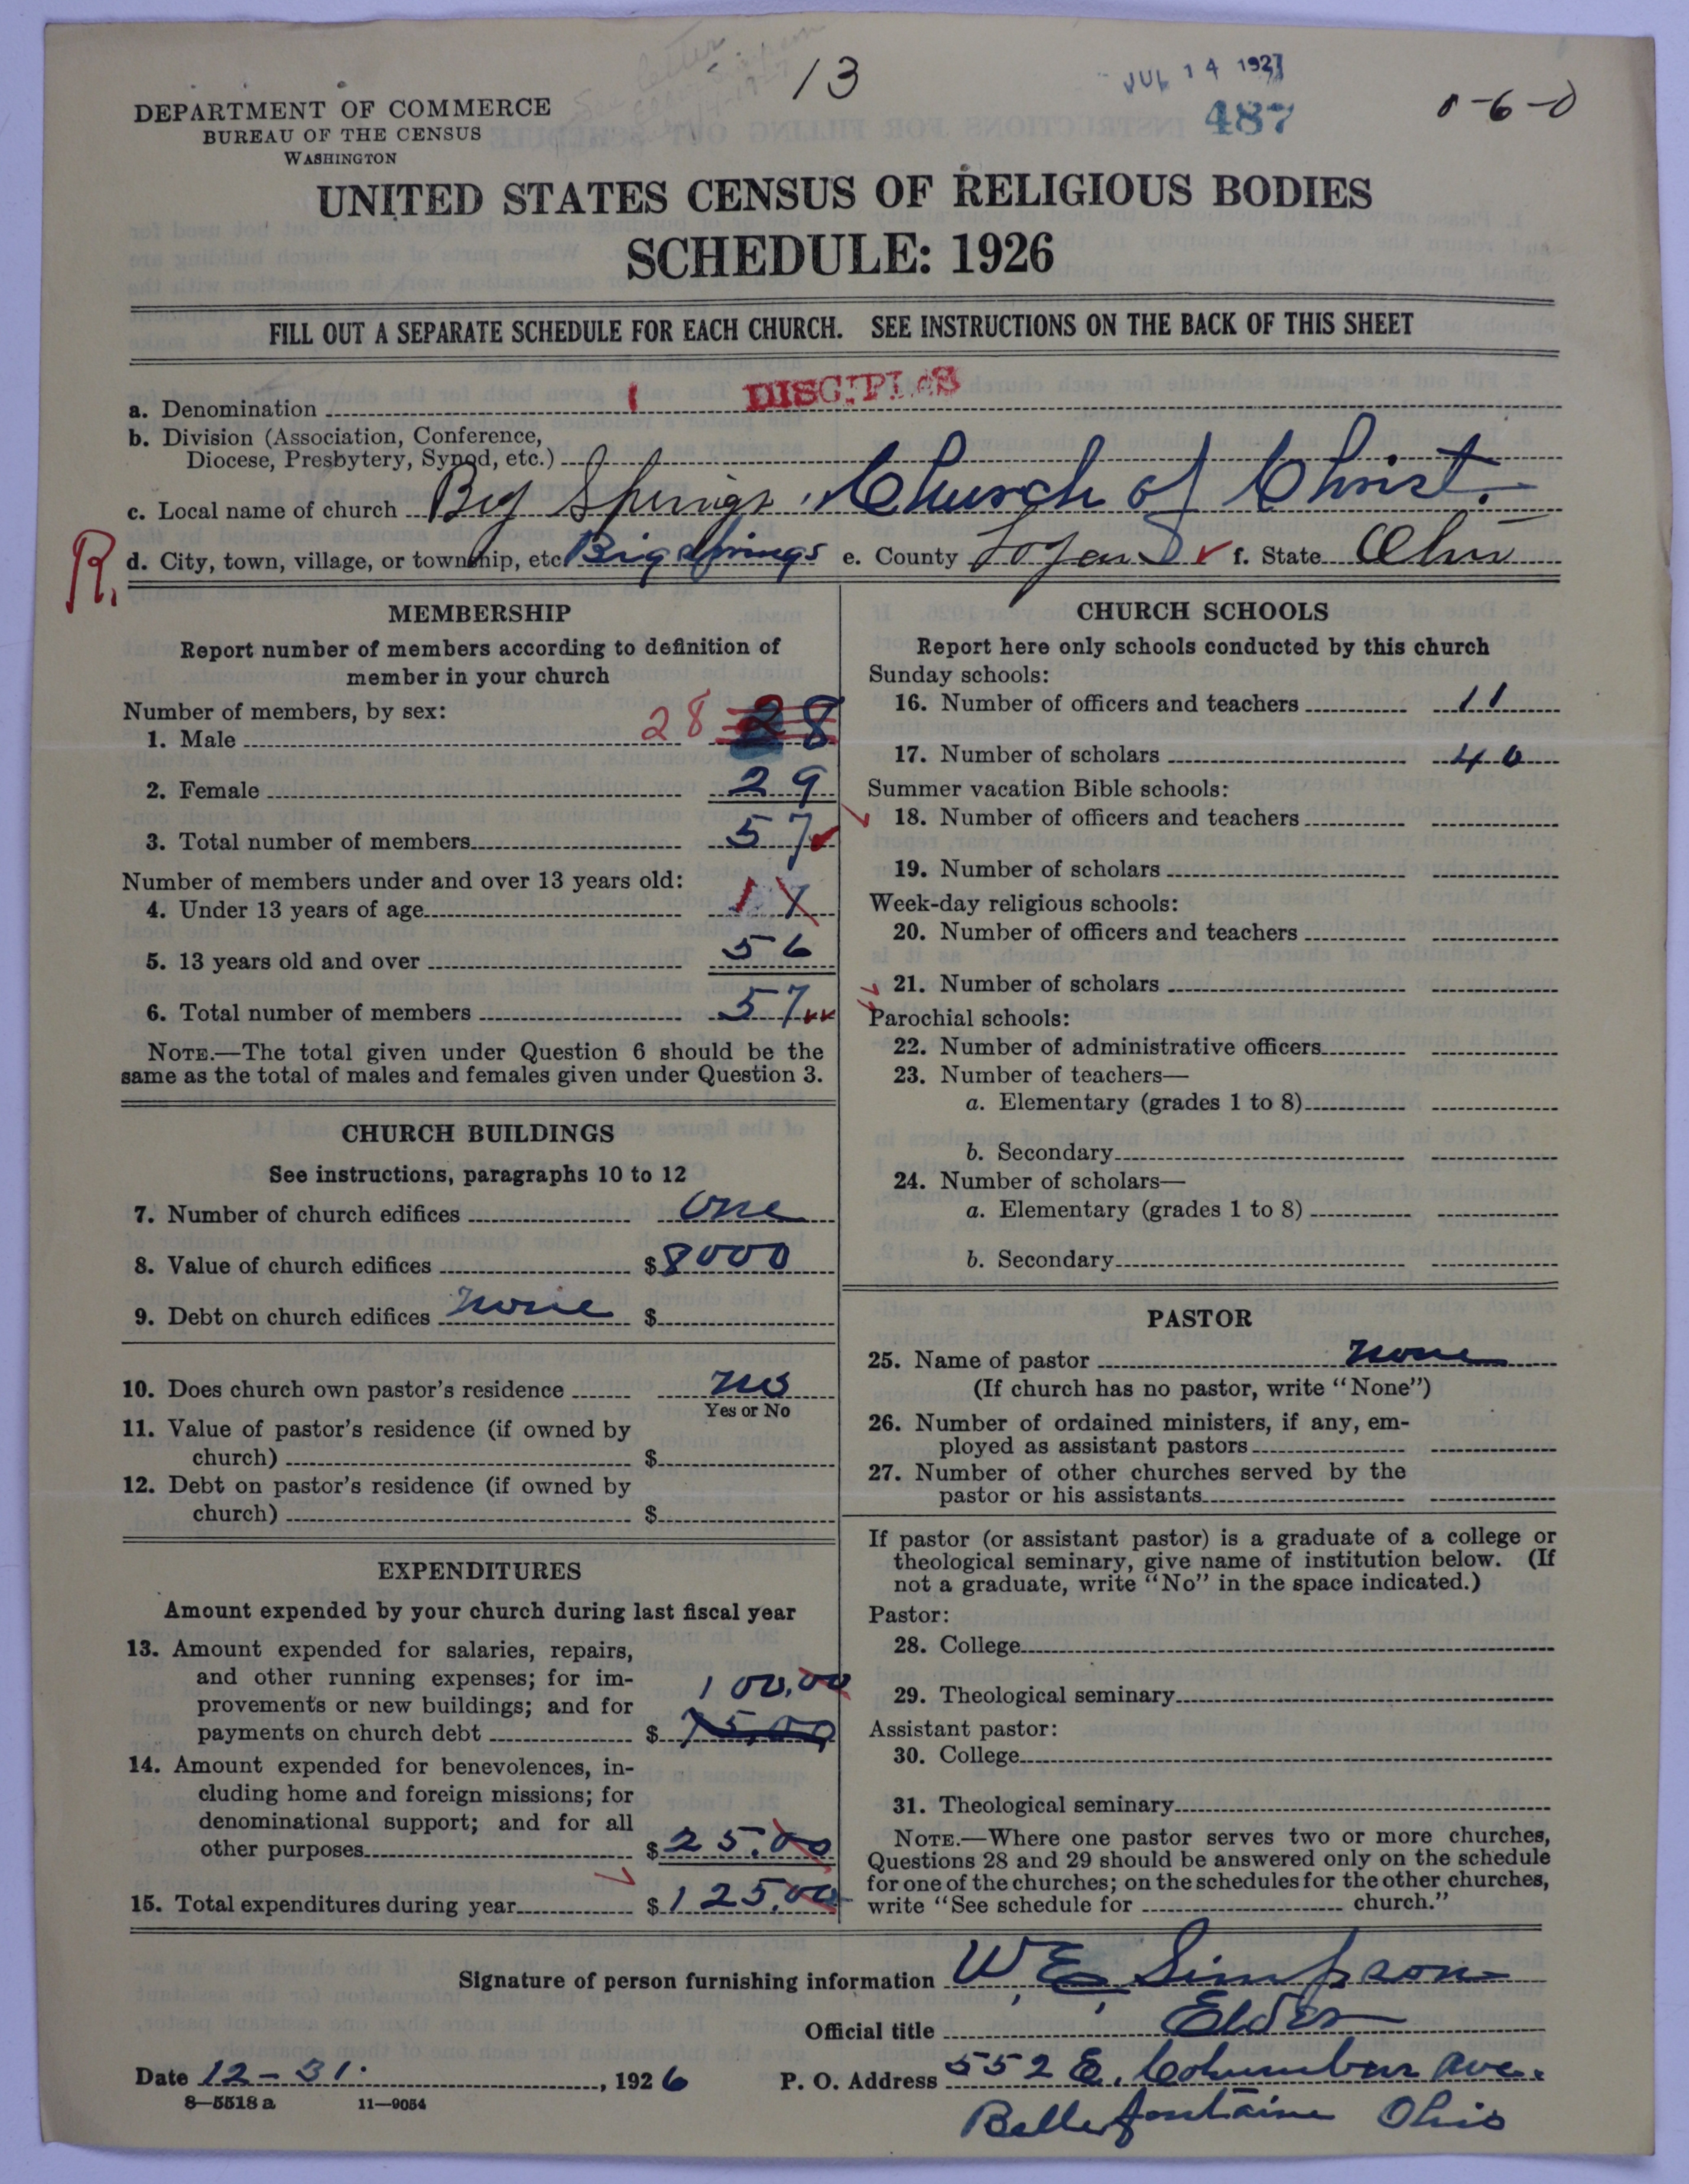 13
JUL 14 1927
487
0-6-0
DEPARTMENT OF COMMERCE
BUREAU OF THE CENSUS
WASHINGTON
UNITED STATES CENSUS OF RELIGIOUS BODIES
SCHEDULE: 1926
FILL OUT A SEPARATE SCHEDULE FOR EACH CHURCH. SEE INSTRUCTIONS ON THE BACK OF THIS SHEET
a. Denomination DISCIPLES
b. Division (Association, Conference,
Diocese, Presbytery, Synod, etc.)
c. Local name of church Big Springs Church of Christ.
R. d. City, town, village, or township, etc Big Springs e. County Logan f. State Ohio
MEMBERSHIP
Report number of members according to definition of
member in your church
Number of members, by sex:
1. Male 28 28
2. Female 29
3. Total number of members 57
Number of members under and over 13 years old:
4. Under 13 years of age 1
5. 13 years old and over 56
6. Total number of members 57
NOTE.—The total given under Question 6 should be the
same as the total of males and females given under Question 3.
CHURCH BUILDINGS
See instructions, paragraphs 10 to 12
7. Number of church edifices one
8. Value of church edifices $8000
9. Debt on church edifices none $
10. Does church own pastor's residence no
Yes or No
11. Value of pastor's residence (if owned by
church) $
12. Debt on pastor's residence (if owned by
church) $
EXPENDITURES
Amount expended by your church during last fiscal year
13. Amount expended for salaries, repairs,
and other running expenses; for im-
provements or new buildings; and for 100.00
payments on church debt $ 75.00
14. Amount expended for benevolences, in-
cluding home and foreign missions; for
denominational support; and for all
other purposes $25.00
15. Total expenditures during year $125.00
CHURCH SCHOOLS
Report here only schools conducted by this church
Sunday schools:
16. Number of officers and teachers 11
17. Number of scholars 40
Summer vacation Bible schools:
18. Number of officers and teachers
19. Number of scholars
Week-day religious schools:
20. Number of officers and teachers
21. Number of scholars
Parochial schools:
22. Number of administrative officers
23. Number of teachers—
a. Elementary (grades 1 to 8)
b. Secondary
24. Number of scholars—
a. Elementary (grades 1 to 8)
b. Secondary
PASTOR
25. Name of pastor none
(If church has no pastor, write "None")
26. Number of ordained ministers, if any, em-
ployed as assistant pastors
27. Number of other churches served by the
pastor or his assistants
If pastor (or assistant pastor) is a graduate of a college or
theological seminary, give name of institution below. (If
not a graduate, write "No" in the space indicated.)
Pastor:
28. College
29. Theological seminary
Assistant pastor:
30. College
31. Theological seminary
NOTE.—Where one pastor serves two or more churches,
Questions 28 and 29 should be answered only on the schedule
for one of the churches; on the schedules for the other churches,
write "See schedule for church."
Signature of person furnishing information W. E. Simpson
Official title Elder
Date 12-31. , 1926 P. O. Address 552 E. Columbus Ave.
8—5518 a 11—9054
Bellefontaine Ohio